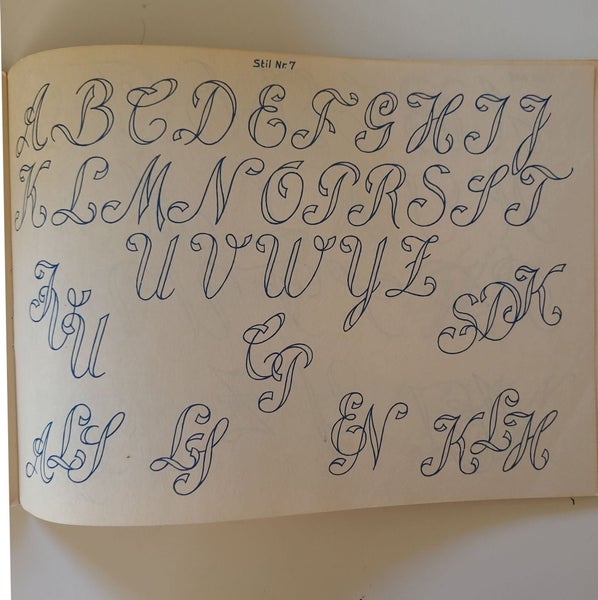 Stil Nr. 7
A B C D E F G H I J
K L M N O P R S S T
U V W Y Z
SDK
CP
ALS LS EN KLH